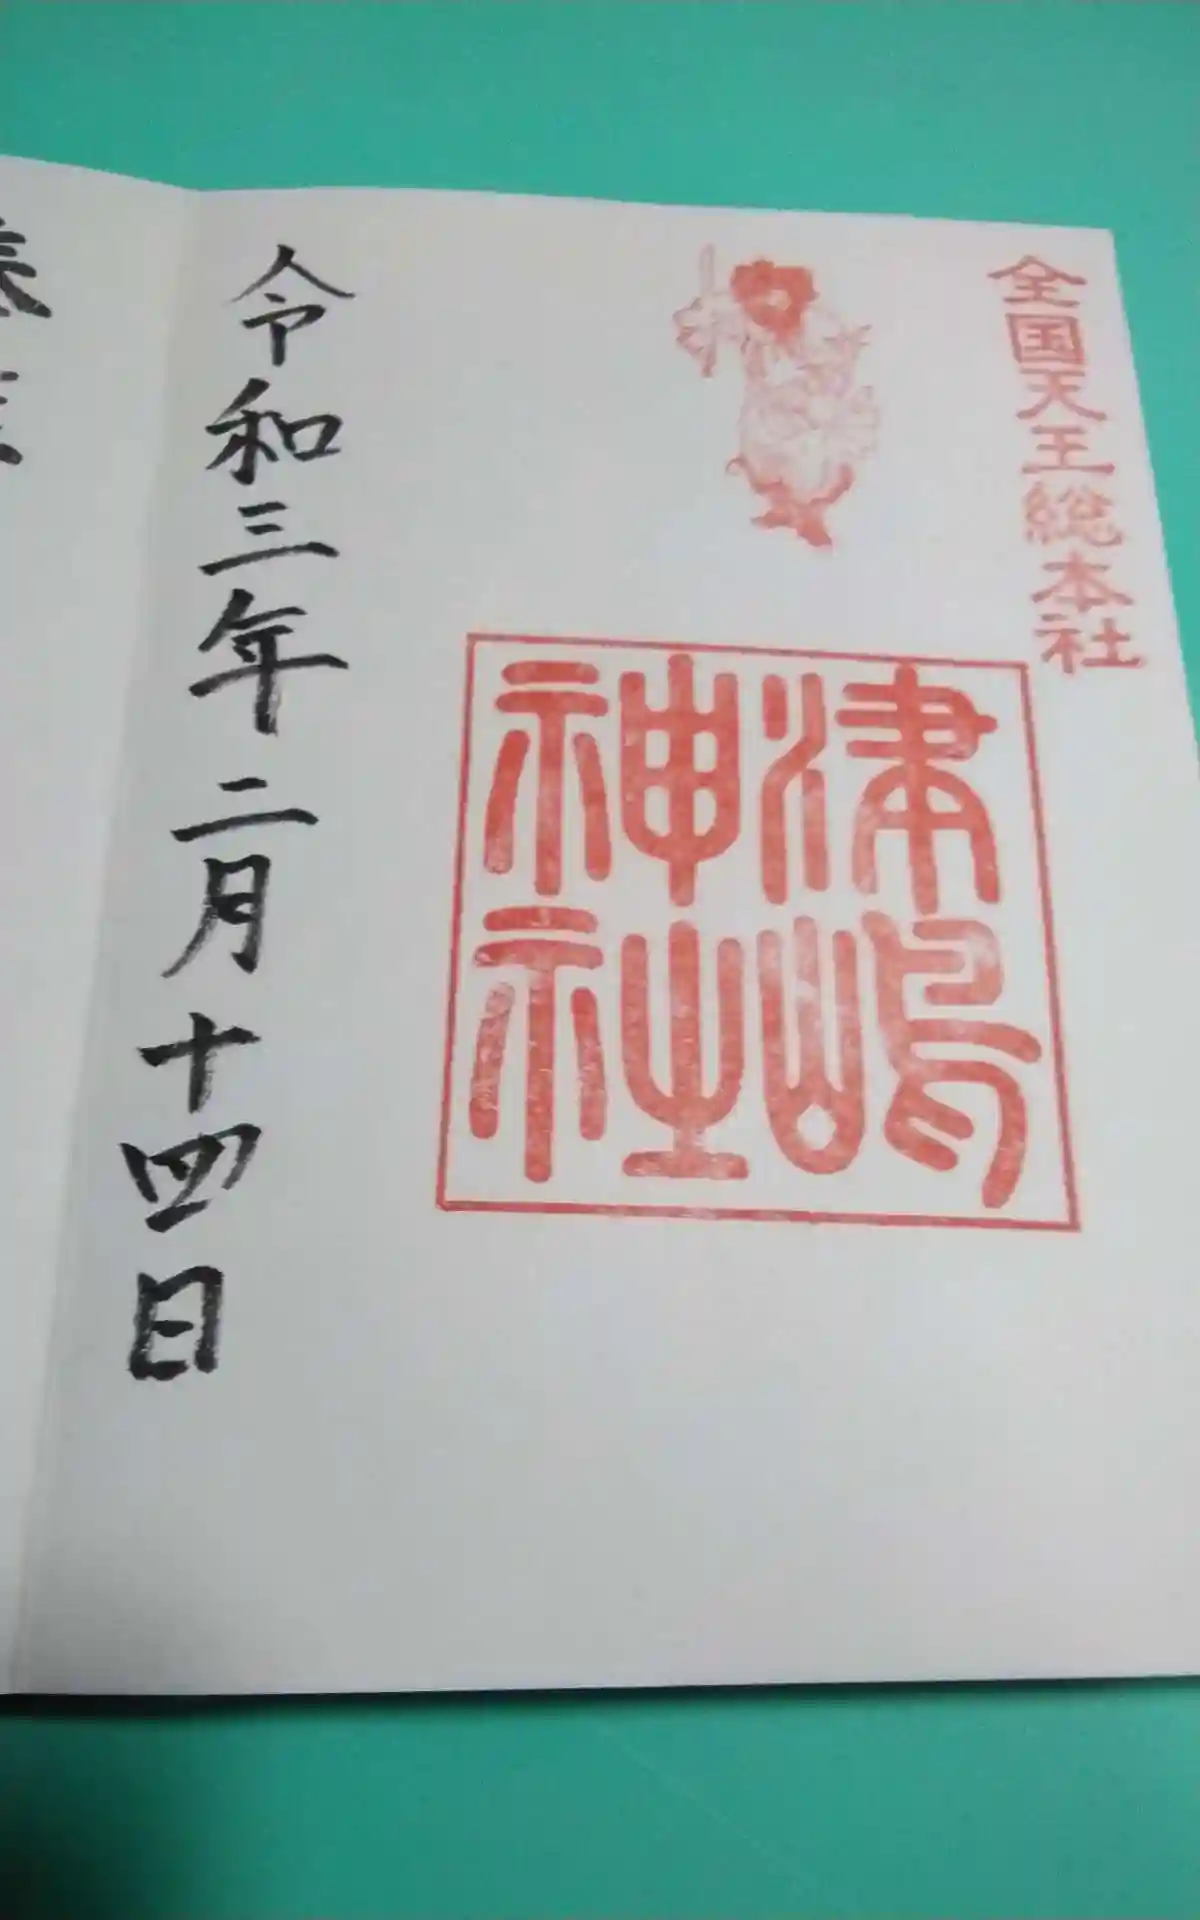 全国天王総本社
津嶋
神社
令和三年二月十四日